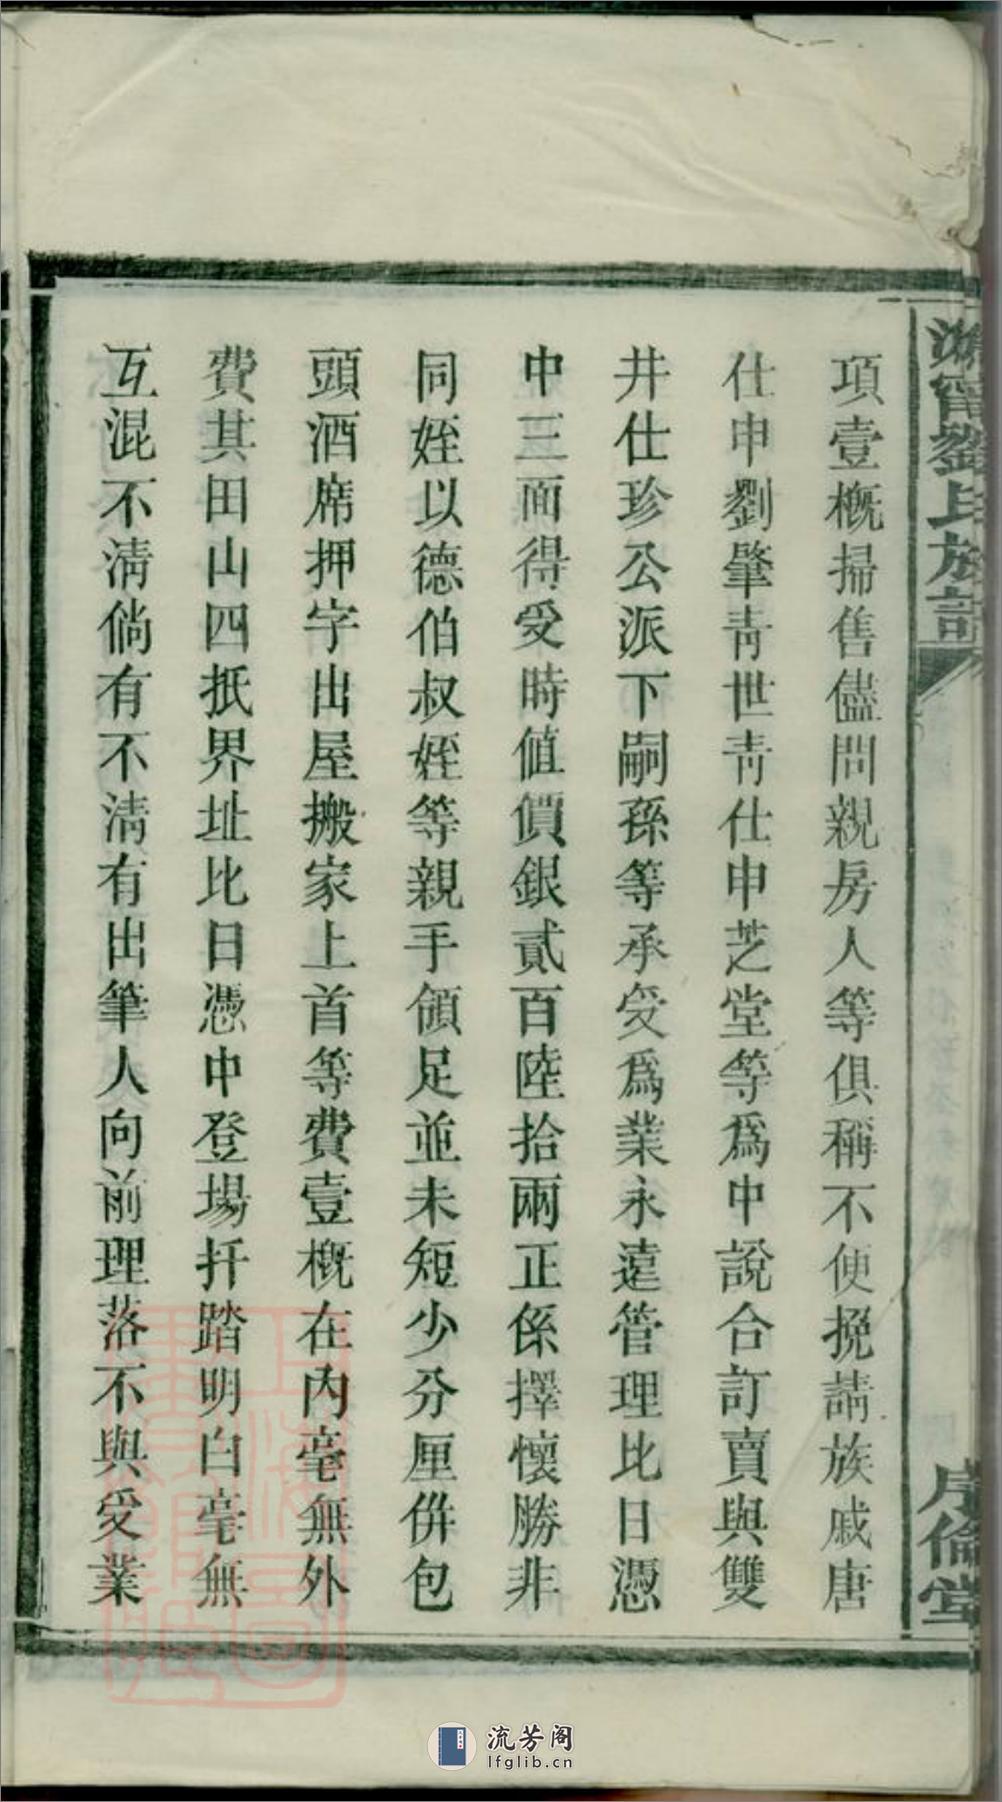 項壹槪掃售儘問親房人等俱稱不便挽請族戚唐
仕申劉肇靑世靑仕申芝堂等爲中說合訂賣與雙
井仕珍公派下嗣孫等承受爲業永遠管理比日憑
中三面得受時値價銀貳百陸拾兩正係擇懷勝非
同姪以德伯叔姪等親手領足並未短少分厘併包
頭酒席押字出屋搬家上首等費壹槪在內毫無外
費其田山四抵界址比日憑中登場扦踏明白毫無
互混不淸倘有不淸有出筆人向前理落不與受業
甯劉氏族譜
序倫堂
上海圖書館藏
流芳阁
lfglib.cn